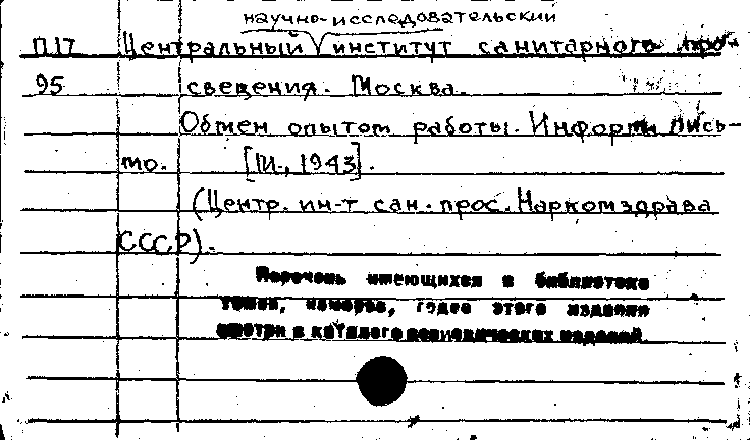 научно-исследовательский
П17 Центральный институт санитарного про-
95 свещения. Москва.
Обмен опытом работы. Информ. пись-
мо. [М., 1943].
(Центр. ин-т сан. прос. Наркомздрава
СССР).
Перечень имеющихся в библиотеке
томов, номеров, годов этого издания
смотри в каталоге периодических изданий.